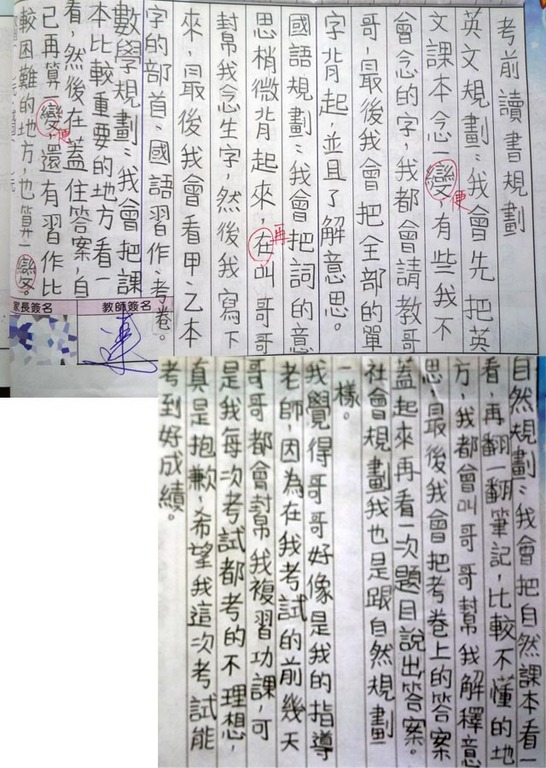 考前讀書規劃
英文規劃：我會先把英
文課本念一變，有些我不
會念的字，我都會請教哥
哥，最後我會把全部的單
字背起，並且了解意思。
國語規劃：我會把詞的意
思梢微背起來，在叫哥哥
幫我念生字，然後我寫下
來，最後我會看甲乙本
字的部首、國語習作、考卷。
數學規劃：我會把課
本比較重要的地方看一
看，然後在蓋住答案，自
己再算一變，還有習作比
較困難的地方，也算一變。
便
再
便
家長簽名
教師簽名
自然規劃：我會把自然課本看一
看，再翻一翻筆記，比較不懂的地
方，我都會叫哥哥幫我解釋意
思，最後我會把考卷上的答案
蓋起來再看一次題目說出答案。
社會規劃我也是跟自然規劃
一樣。
我覺得哥哥好像是我的指導
老師，因為在我考試的前幾天
哥哥都會幫我複習功課，可
是我每次考試都考的不理想，
真是抱歉，希望我這次考試能
考到好成績。